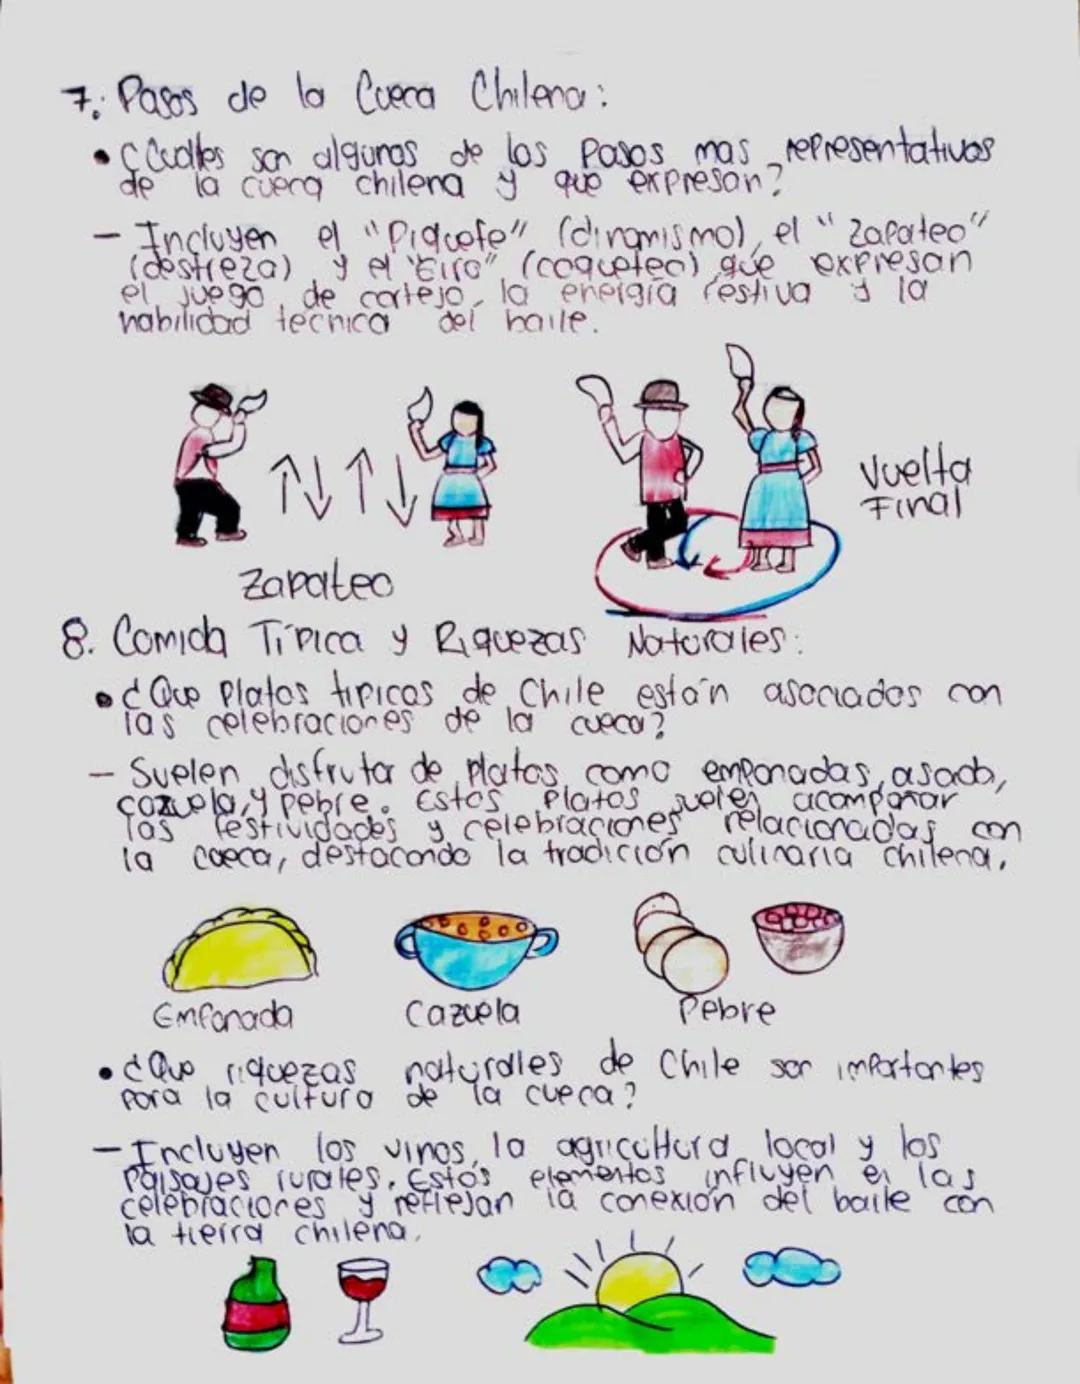 7. Pasos de la Cueca Chilena:
• ¿Cuáles son algunos de los pasos mas representativos
de la cueca chilena y que expresan?
– Incluyen el "Piquete" (dinamismo), el "Zapateo"
(destreza) y el "Giro" (coqueteo) que expresan
el juego de cortejo, la energía festiva y la
habilidad técnica del baile.
Vuelta
Final
Zapateo
8. Comida Típica y Riquezas Naturales:
• ¿Que platos tipicos de Chile están asociados con
las celebraciones de la cueca?
– Suelen disfrutar de platos como empanadas, asado,
cazuela, y pebre. Estos platos suelen acompañar
las festividades y celebraciones relacionadas con
la cueca, destacando la tradición culinaria chilena.
Empanada Cazuela Pebre
• ¿Que riquezas naturales de Chile son importantes
para la cultura de la cueca?
– Incluyen los vinos, la agricultura local y los
paisajes rurales. Estos elementos influyen en las
celebraciones y reflejan la conexión del baile con
la tierra chilena.